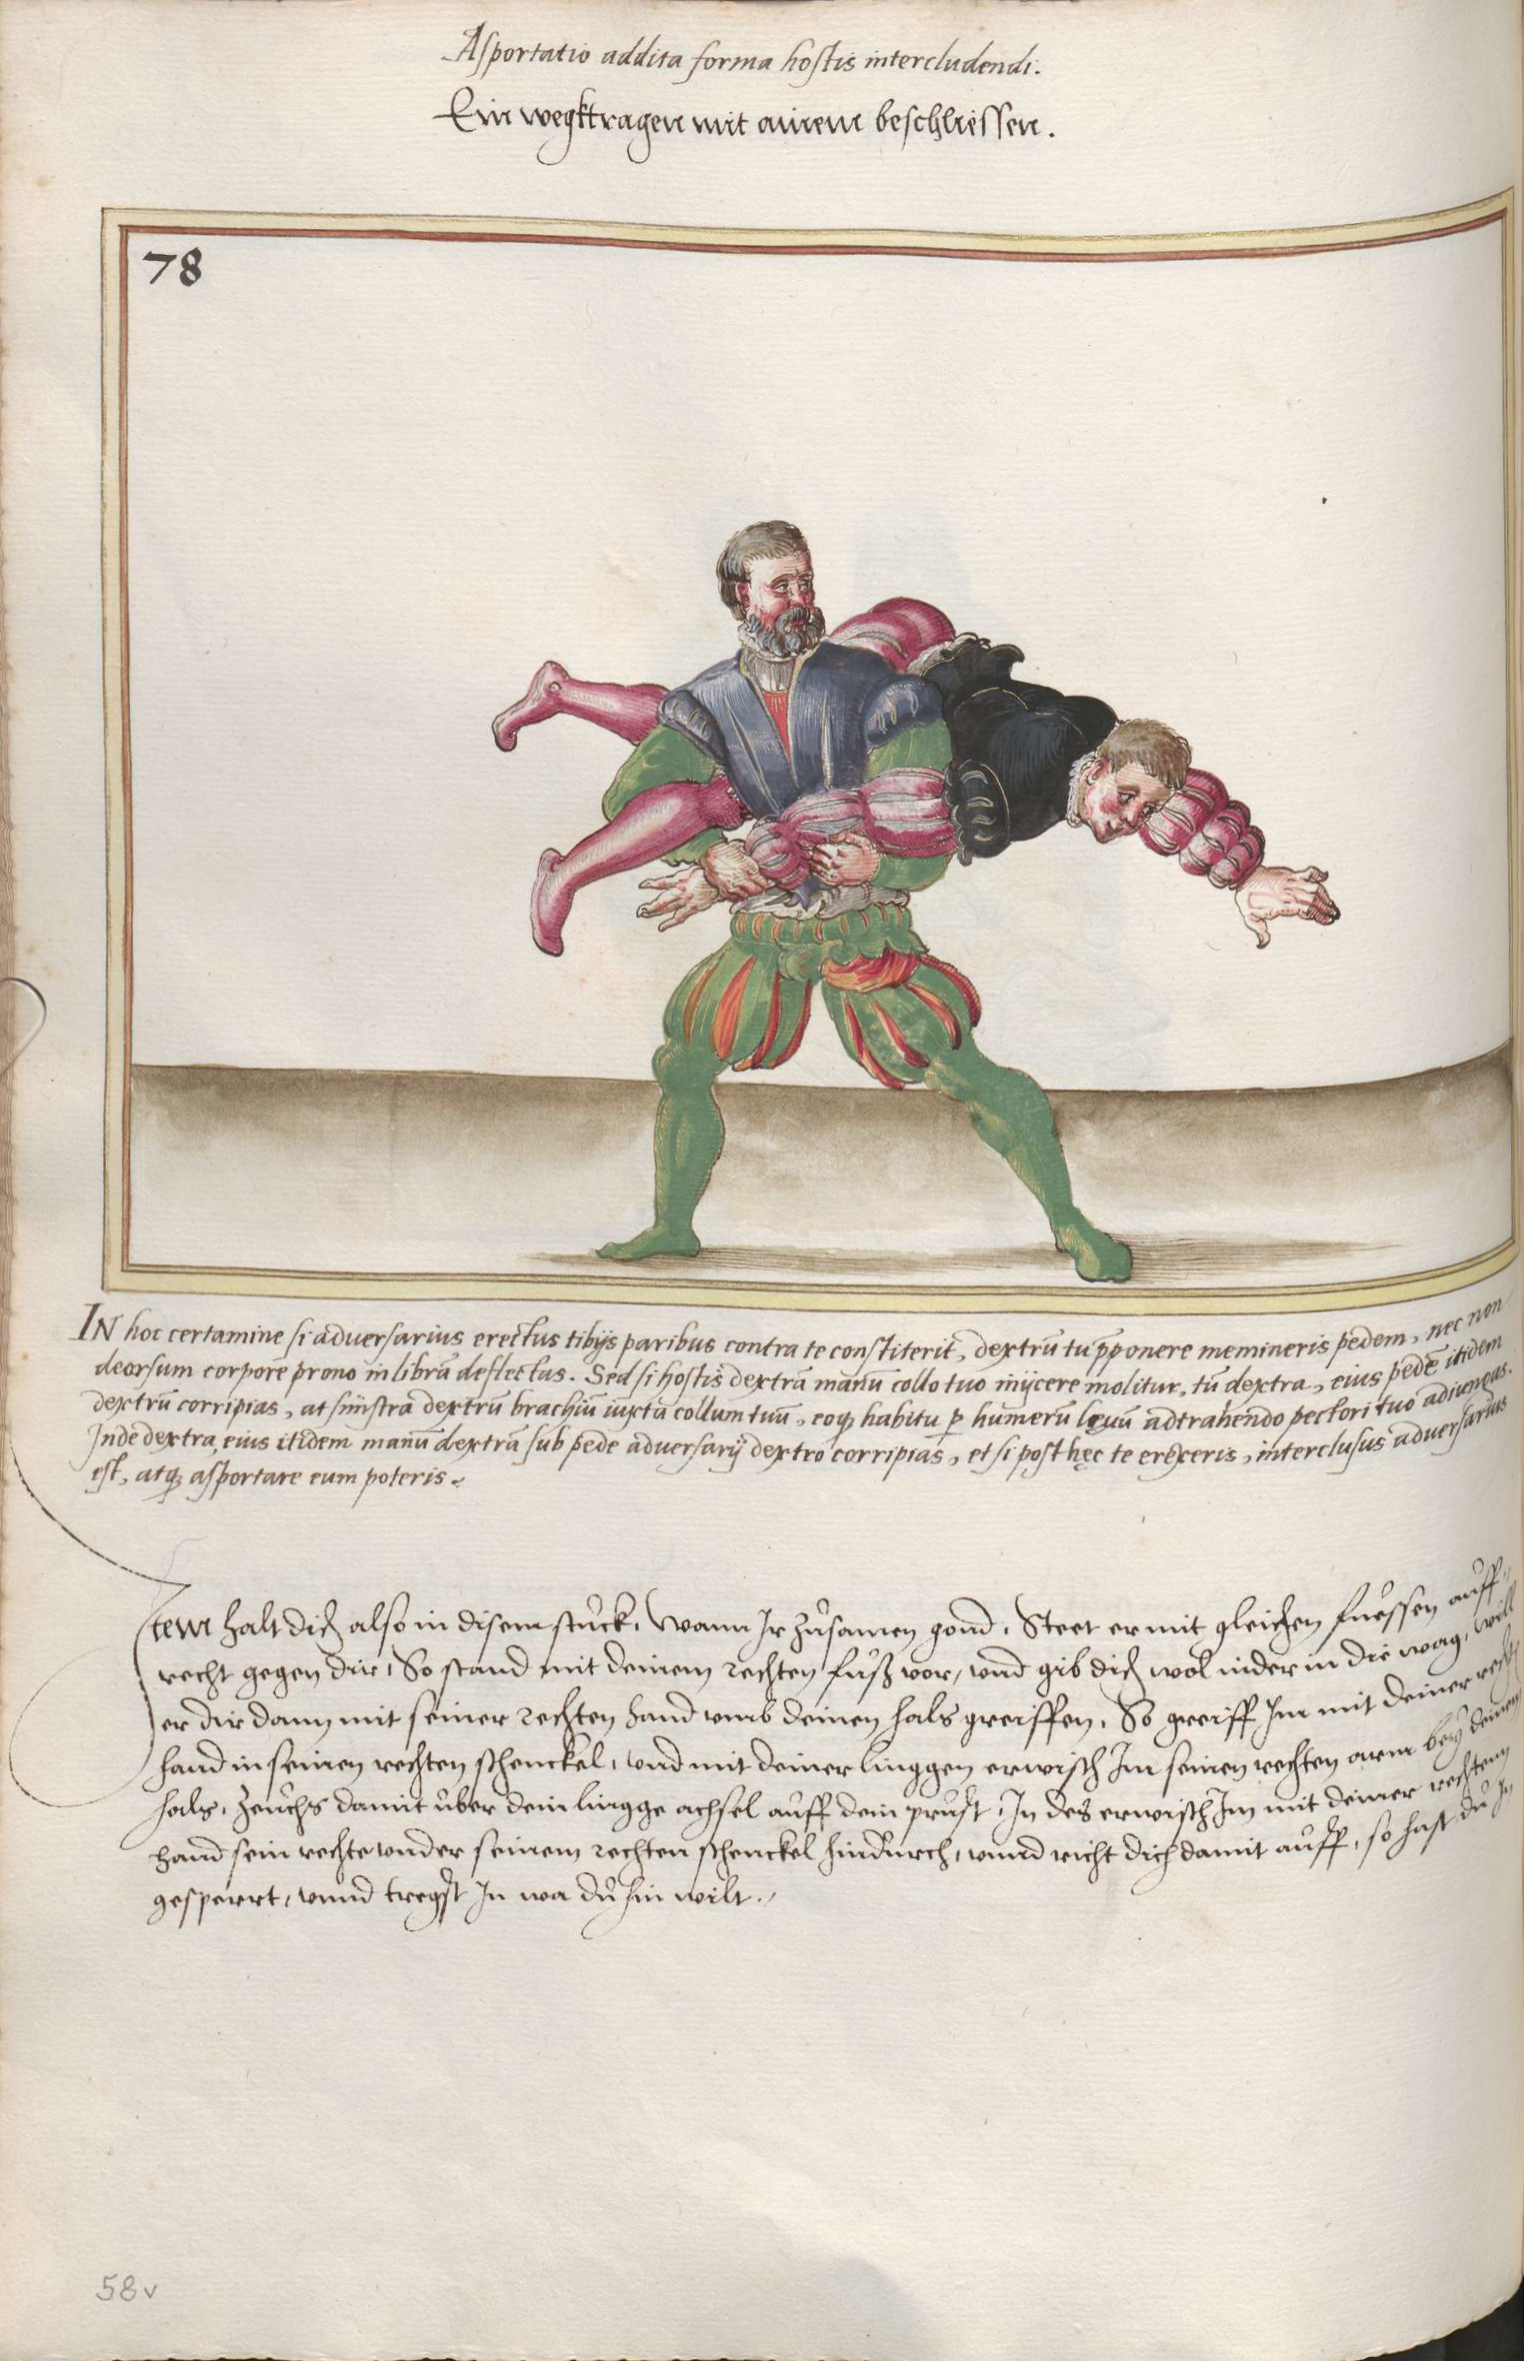 Asportatio addita forma hostis intercludendi.
Ein wegktragen mit ainem beschliessen.
78
IN hoc certamine si adversarius erectus tibijs paribus contra te constiterit, dextrũ tu p̄ponere memineris pedem, nec non
deorsum corpore prono in librã deflectas. Sed si hostis dextrã manũ collo tuo inijcere molitur, tũ dextra, eius pedẽ itidem
dextrũ corripias, at sinistra dextrũ brachiũ iuxta collum tuũ, eoq; habitu p humerũ lęuũ adtrahendo pectori tuo adiungas.
Inde dextra, eius itidem manũ dextrã sub pede adversarij dextro corripias, et si post hęc te erexeris, interclusus adversarius
est, atq; asportare eum poteris.
Item halt dich also in disem stuck, Wann Ir zůsamen gond, Steet er mit gleichen fuessen auff„
recht gegen dir, So stand mit deinem rechten fuß vor, vnd gib dich wol nider in die wag, will
er dir dann mit seiner rechten hand vmb deinen hals greiffen, So greiff Im mit deiner recht
hand in seinen rechten schenckel, vnd mit deiner linggen erwisch Im seinen rechten arm bey deinem
hals, zeuchs damit über dein lingge achsel auff dein prust, In des erwisch Im mit deiner rechten
hand sein rechte vnder seinem rechten schenckel hindurch, vnnd richt dich damit auff, so hast du In
gesperrt, vnnd tregst In wa du hin wilt.
58v